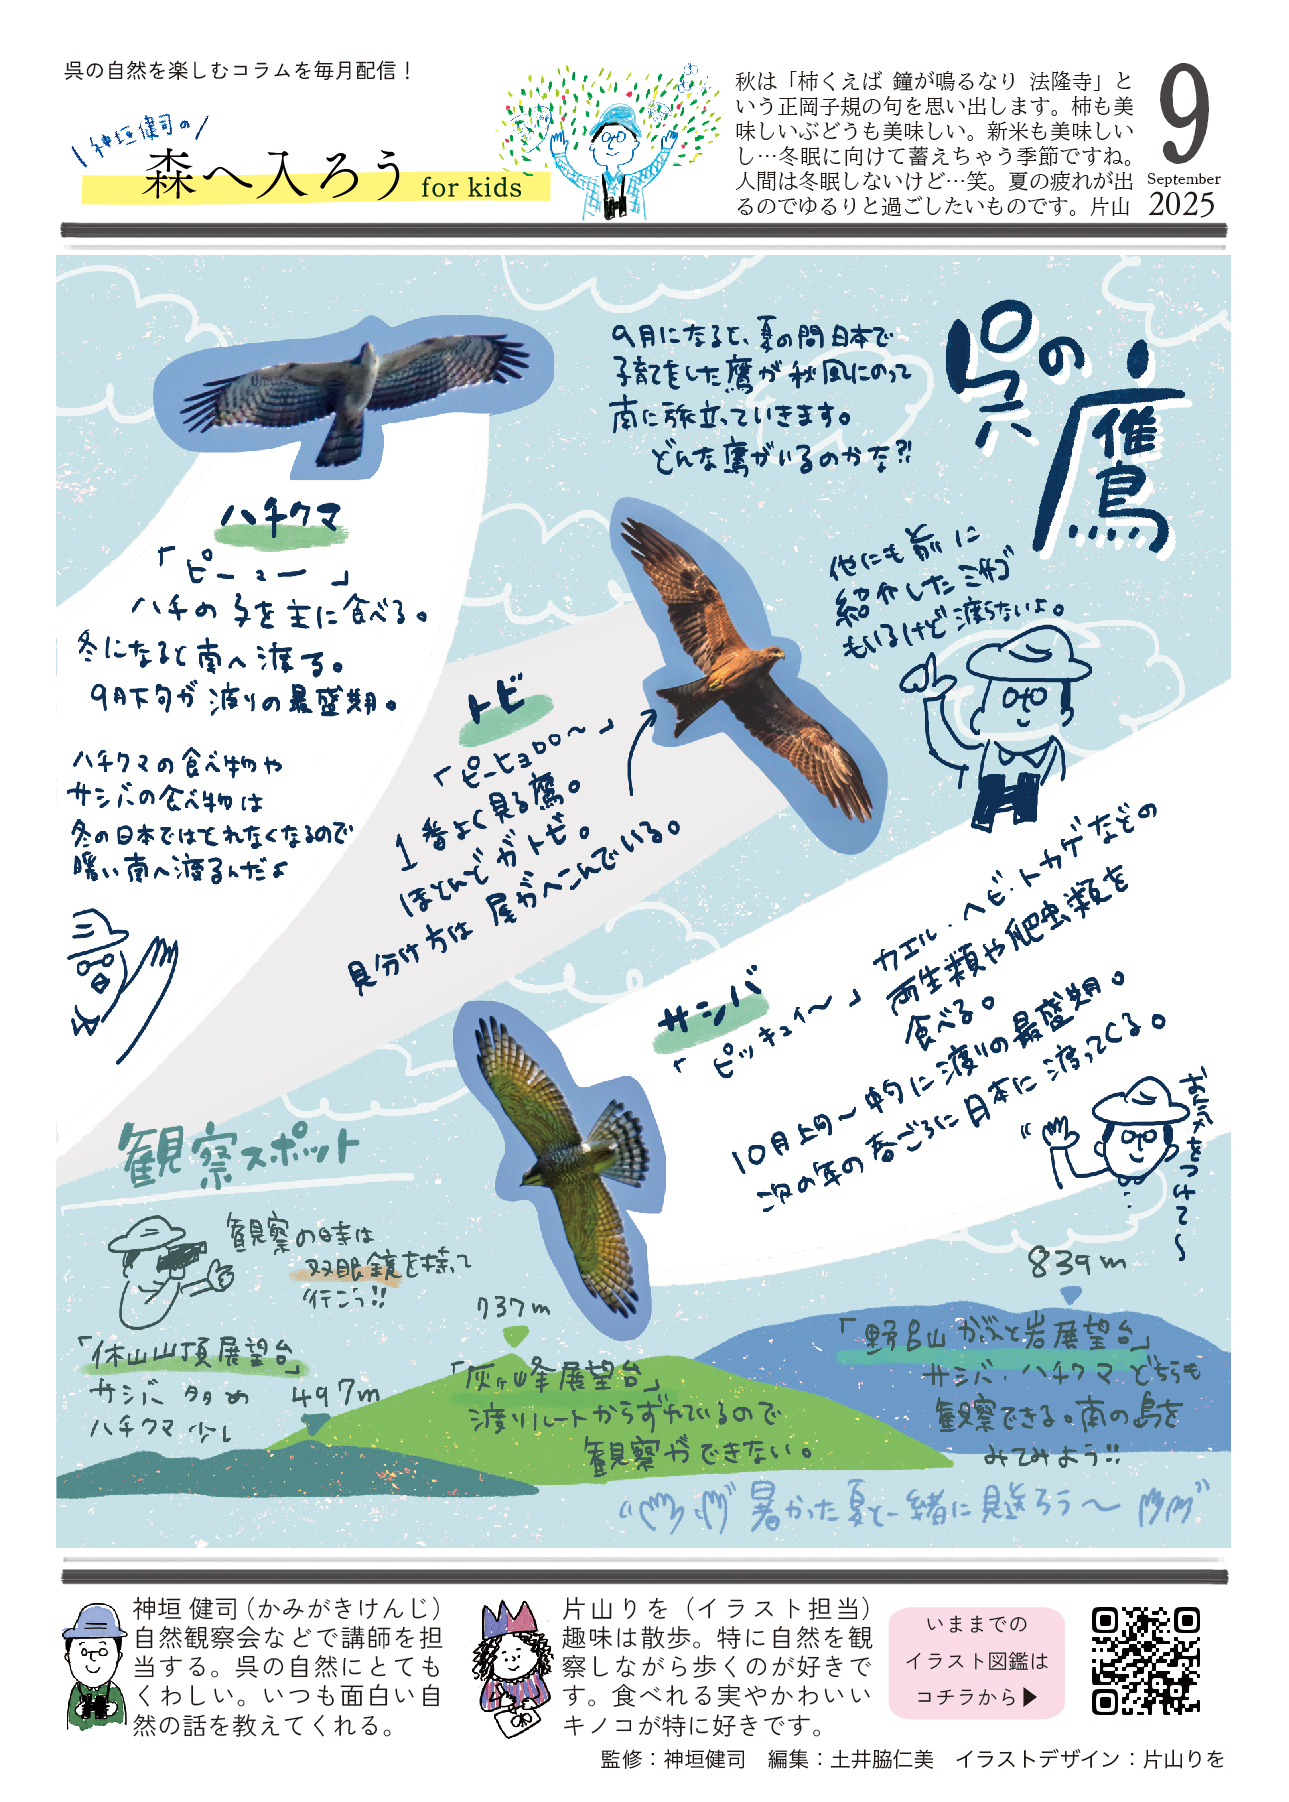 呉の自然を楽しむコラムを毎月配信！
神垣健司の
森へ入ろう for kids
秋は「柿くえば 鐘が鳴るなり 法隆寺」と
いう正岡子規の句を思い出します。柿も美
味しいぶどうも美味しい。新米も美味しい
し…冬眠に向けて蓄えちゃう季節ですね。
人間は冬眠しないけど…笑。夏の疲れが出
るのでゆるりと過ごしたいものです。片山
9
September
2025
呉の鷹
9月になると、夏の間日本で
子育てをした鷹が秋風にのって
南に旅立っていきます。
どんな鷹がいるのかな?!
ハチクマ
「ピーュー」
ハチの子を主に食べる。
冬になると南へ渡る。
9月下旬が渡りの最盛期。
ハチクマの食べ物や
サシバの食べ物は
冬の日本ではとれなくなるので
暖い南へ渡るんだよ
他にも前に
紹介したミサゴ
もいるけど渡らないよ。
トビ
「ピーヒョロロ〜」
1番よく見る鷹。
ほとんどがトビ。
見分け方は尾がへこんでいる。
サシバ
「ピッキュイ〜」
カエル・ヘビ・トカゲなどの
両生類や爬虫類を
食べる。
10月上旬〜中旬に渡りの最盛期。
次の年の春ごろに日本に渡ってくる。
お気をつけて〜
観察スポット
観察の時は
双眼鏡を持って
行こう!!
「休山山頂展望台」
サシバ多め
ハチクマ少し
497m
737m
「灰ヶ峰展望台」
渡りルートからずれているので
観察ができない。
839m
「野呂山かぶと岩展望台」
サシバ・ハチクマどちらも
観察できる。南の島を
みてみよう!!
暑かった夏と一緒に見送ろう〜
神垣 健司（かみがきけんじ）
自然観察会などで講師を担
当する。呉の自然にとても
くわしい。いつも面白い自
然の話を教えてくれる。
片山りを（イラスト担当）
趣味は散歩。特に自然を観
察しながら歩くのが好きで
す。食べれる実やかわいい
キノコが特に好きです。
いままでの
イラスト図鑑は
コチラから▶
監修：神垣健司　編集：土井脇仁美　イラストデザイン：片山りを